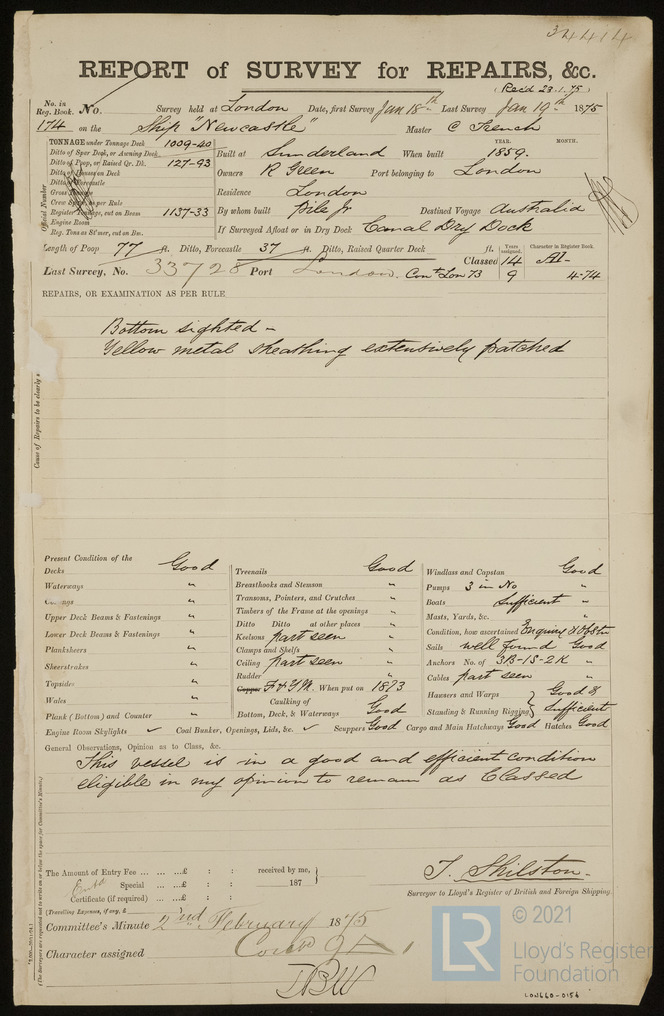 34414
REPORT of SURVEY for REPAIRS, &c.
(Rec'd 23.1.75)
No. in Reg. Book. No. Survey held at London Date, first Survey Jan 18th Last Survey Jan 19th 1875
174 on the Ship "Newcastle" Master C French
TONNAGE under Tonnage Deck 1009-40
Ditto of Spar Deck, or Awning Deck
Ditto of Poop, or Raised Qr. Dk. 127-93
Ditto of Houses on Deck
Ditto of Forecastle
Gross Tonnage
Crew Space per Rule
Register Tonnage, cut on Beam 1137-33
Engine Room
Reg. Tons as St'mer, cut on Bm.
Official Number
YEAR. MONTH.
Built at Sunderland When built 1859.
Owners R Green Port belonging to London
Residence London
By whom built Pile Jr Destined Voyage Australia
If Surveyed Afloat or in Dry Dock Canal Dry Dock
Length of Poop 77 ft. Ditto, Forecastle 37 ft. Ditto, Raised Quarter Deck ft.
Years assigned. Character in Register Book.
Classed 14 A1-
Last Survey, No. 33728 Port London. Contd Lon 73 9 4-74
REPAIRS, OR EXAMINATION AS PER RULE
Bottom sighted -
Yellow metal sheathing extensively patched
Cause of Repairs to be clearly s
Present Condition of the
Decks Good
Waterways "
Upper Deck Beams & Fastenings "
Lower Deck Beams & Fastenings "
Planksheers "
Sheerstrakes "
Topsides "
Wales "
Plank (Bottom) and Counter "
Treenails Good
Breasthooks and Stemson "
Transoms, Pointers, and Crutches "
Timbers of the Frame at the openings "
Ditto Ditto at other places "
Keelsons part seen "
Clamps and Shelfs "
Ceiling part seen "
Rudder "
Copper F & YM. When put on 1873
Caulking of Bottom, Deck, & Waterways Good
Windlass and Capstan Good
Pumps 3 in No "
Boats Sufficient "
Masts, Yards, &c. "
Condition, how ascertained Enquiry & Obstn
Sails well found Good
Anchors No. of 3B-1S-2K "
Cables part seen "
Hawsers and Warps } Good &
Standing & Running Rigging } Sufficient
Engine Room Skylights ✓ Coal Bunker, Openings, Lids, &c. ✓ Scuppers Good Cargo and Main Hatchways Good Hatches Good
General Observations, Opinion as to Class, &c.
This vessel is in a good and efficient condition
eligible in my opinion to remain as Classed
The Amount of Entry Fee ... ... ...£ : : received by me,
Special ... ...£ : :
187
Certificate (if required) ... ...£ : :
(Travelling Expenses, if any, £
T. Shilston.
Surveyor to Lloyd's Register of British and Foreign Shipping.
Committee's Minute 2nd February 1875
Character assigned Contd 9 A 1
(The Surveyors are requested not to write on or below the space for Committee's Minute.)
© 2021
LR
Lloyd's Register
Foundation
LON660-0154